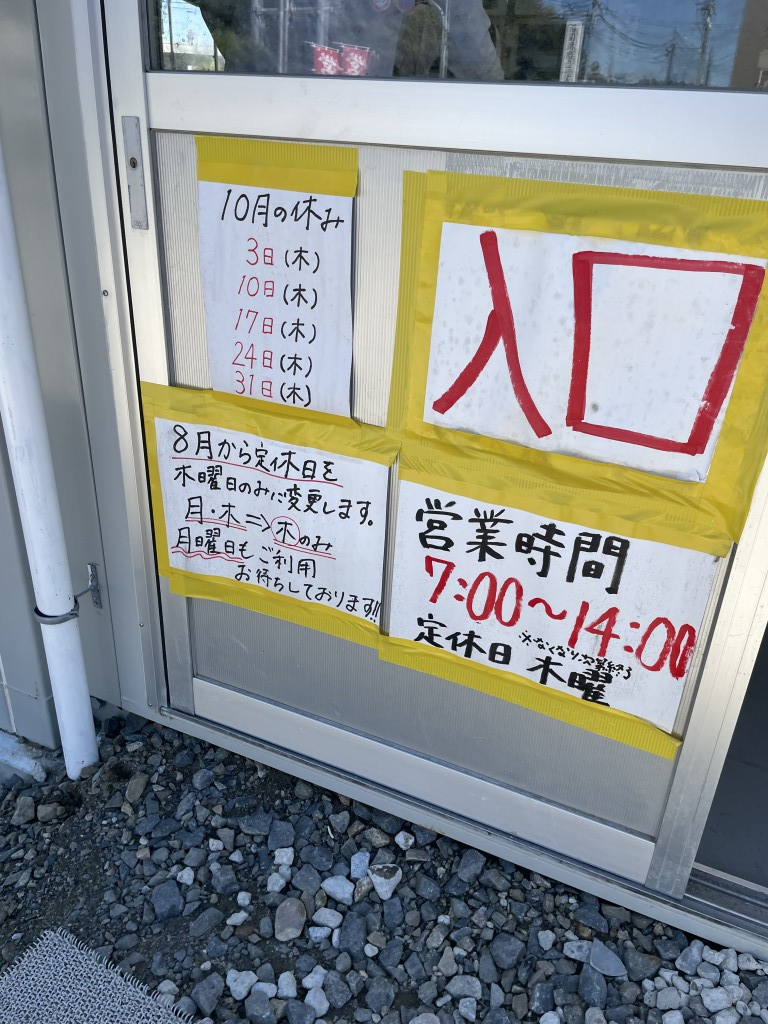 10月の休み
3日(木)
10日(木)
17日(木)
24日(木)
31日(木)
入口
8月から定休日を
木曜日のみに変更します。
月・木⇒木のみ
月曜日もご利用
お待ちしております!!
営業時間
7:00〜14:00
※なくなり次第終了
定休日 木曜